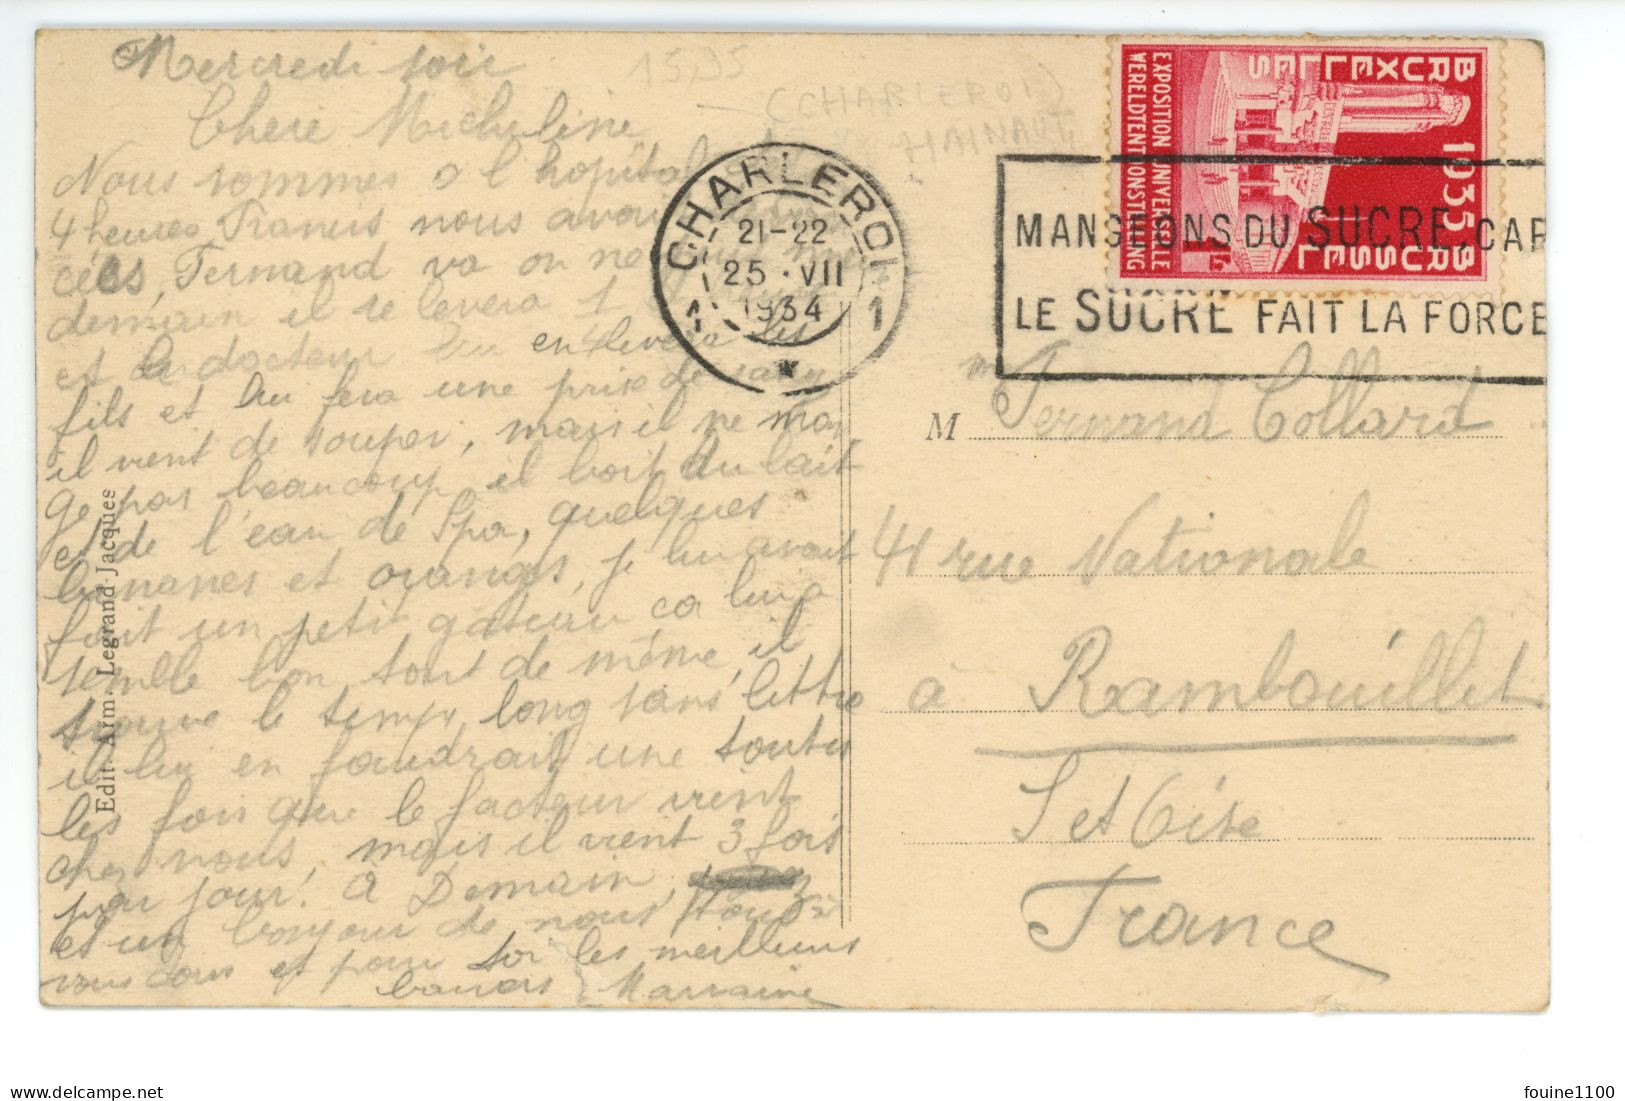 Mercredi soir
Chere Micheline
Nous sommes a l hopital
4 heures Francis nous avou
cées, Fernand va on ne
demain il se levera 1
et le docteur lui enlevera les
fils et lui fera une prise de sang
il vient de souper, mais il ne man
ge pas beaucoup, il boit du lait
et de l'eau de Spa, quelques
bananes et oranges, je lui avait
fait un petit gateau ca lui a
semblé bon tout de même, il
trouve le temps long sans lettre
il lui en faudrait une toutes
les fois que le facteur vient
chez nous, mais il vient 3 fois
par jour! a Demain,
et un bonjour de nous tous à
vous tous et pour toi les meilleurs
baisers Marraine
Edit. Arm. Legrand-Jacques
15,35
(CHARLEROI)
HAINAUT
CHARLEROI
1 1
21-22
25 · VII
1934
MANGEONS DU SUCRE, CAR
LE SUCRE FAIT LA FORCE
BRUXELLES
1935
BRUSSEL
EXPOSITION UNIVERSELLE
WERELDTENTOONSTELLING
M
me Fernand Collard
41 rue Nationale
à Rambouillet
S et Oise
France
delcampe.net
fouine1100